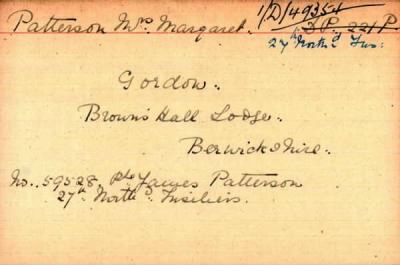 Patterson Mrs. Margaret. 1/D/49354
S.P. 221 P.
27th North'd Fus:
Gordon.
Browns Hall Lodge.
Berwickshire.
No. 59528. Pte James Patterson
27th North'd Fusiliers.